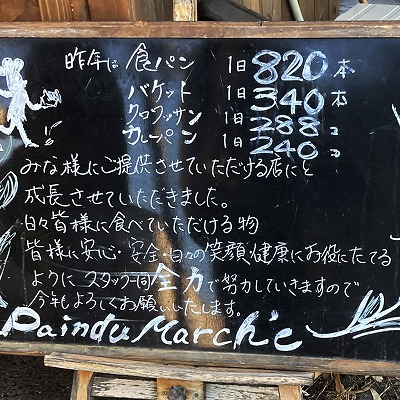 昨年は 食パン 1日 820本
バケット 1日 340本
クロワッサン 1日 288コ
カレーパン 1日 240コ
みな様にご提供させていただける店にと
成長させていただきました。
日々皆様に食べていただける物
皆様に安心・安全・日々の笑顔、健康にお役にたてる
ようにスタッフ一同全力で努力していきますので
今年もよろしくお願いいたします。
Pain du Marche